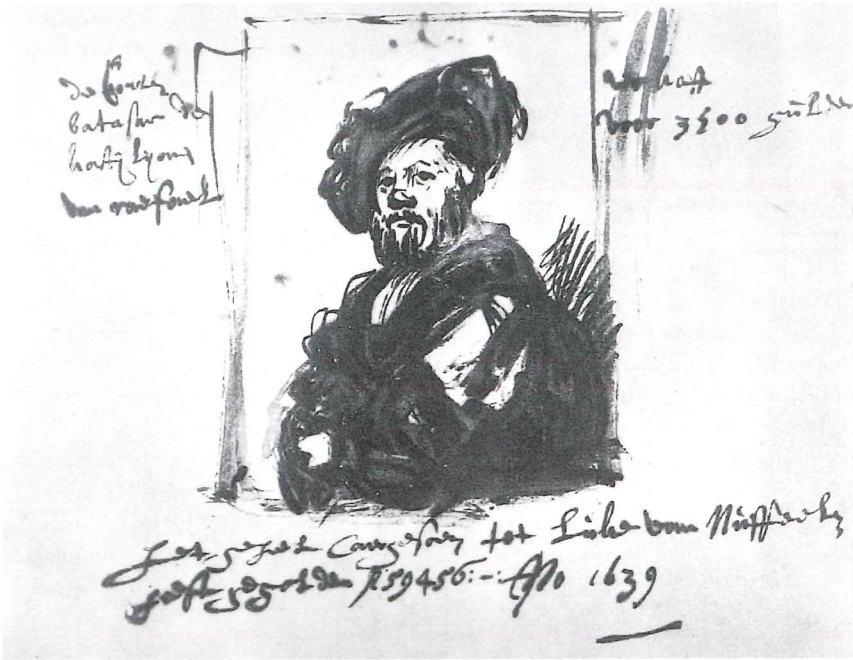 de Conte
batasar de
kastylyone
van raefael
verkoft
voor 3500 gulden
het geheel caergesoen tot Luke van Nuffeelen
heeft gegolden f 59456:- Ano 1639